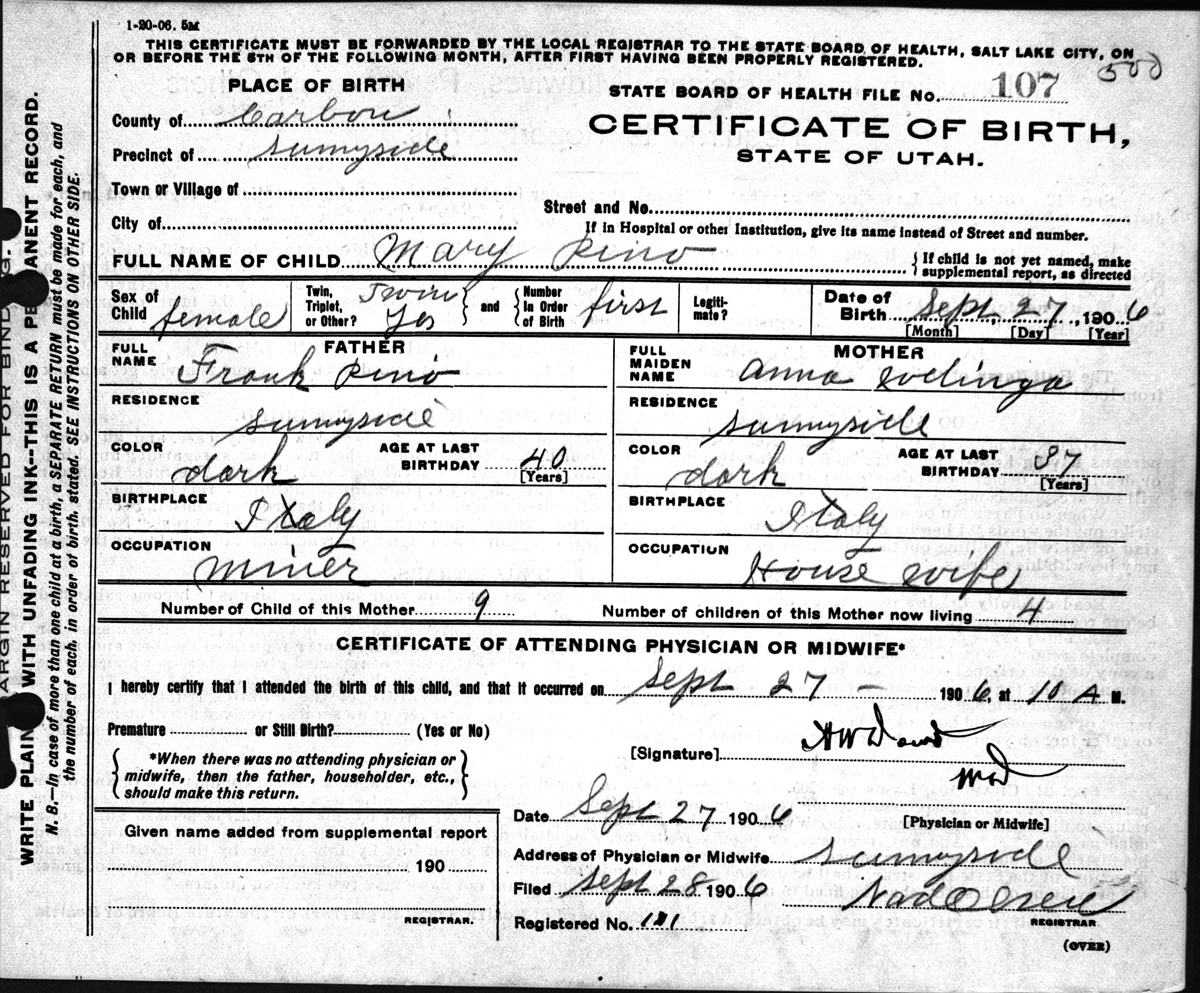 1-20-06. 5M
THIS CERTIFICATE MUST BE FORWARDED BY THE LOCAL REGISTRAR TO THE STATE BOARD OF HEALTH, SALT LAKE CITY, ON
OR BEFORE THE 5TH OF THE FOLLOWING MONTH, AFTER FIRST HAVING BEEN PROPERLY REGISTERED.
500
PLACE OF BIRTH
STATE BOARD OF HEALTH FILE No. 107
County of Carbon
CERTIFICATE OF BIRTH,
Precinct of Sunnyside
STATE OF UTAH.
Town or Village of
Street and No.
City of
If in Hospital or other Institution, give its name instead of Street and number.
FULL NAME OF CHILD Mary Pino
If child is not yet named, make
supplemental report, as directed
Sex of Child female
Twin, Triplet, or Other? Twin Yes and Number In Order of Birth first
Legitimate?
Date of Birth Sept 27, 1906
[Month] [Day] [Year]
FATHER
FULL NAME Frank Pino
RESIDENCE Sunnyside
COLOR dark
AGE AT LAST BIRTHDAY 40 [Years]
BIRTHPLACE Italy
OCCUPATION miner
MOTHER
FULL MAIDEN NAME Anna
RESIDENCE Sunnyside
COLOR dark
AGE AT LAST BIRTHDAY 37 [Years]
BIRTHPLACE Italy
OCCUPATION House wife
Number of Child of this Mother 9
Number of children of this Mother now living 4
CERTIFICATE OF ATTENDING PHYSICIAN OR MIDWIFE*
I hereby certify that I attended the birth of this child, and that it occurred on Sept 27 - 1906, at 10 A M.
Premature or Still Birth? (Yes or No)
*When there was no attending physician or
midwife, then the father, householder, etc.,
should make this return.
[Signature] H W
MD
[Physician or Midwife]
Date Sept 27 1906
Address of Physician or Midwife Sunnyside
Filed Sept 28 1906
REGISTRAR
Registered No. 101
(OVER)
Given name added from supplemental report
190
REGISTRAR.
MARGIN RESERVED FOR BINDING.
WRITE PLAINLY WITH UNFADING INK--THIS IS A PERMANENT RECORD.
N. B.—In case of more than one child at a birth, a SEPARATE RETURN must be made for each, and
the number of each, in order of birth, stated. SEE INSTRUCTIONS ON OTHER SIDE.